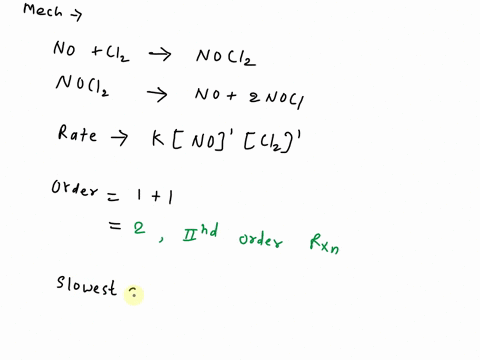 Mech →
NO + Cl₂ → NOCl₂
NOCl₂ → NO + 2NOCl
Rate → K[NO]' [Cl₂]'
Order = 1 + 1
= 2, IInd order Rxn
Slowest